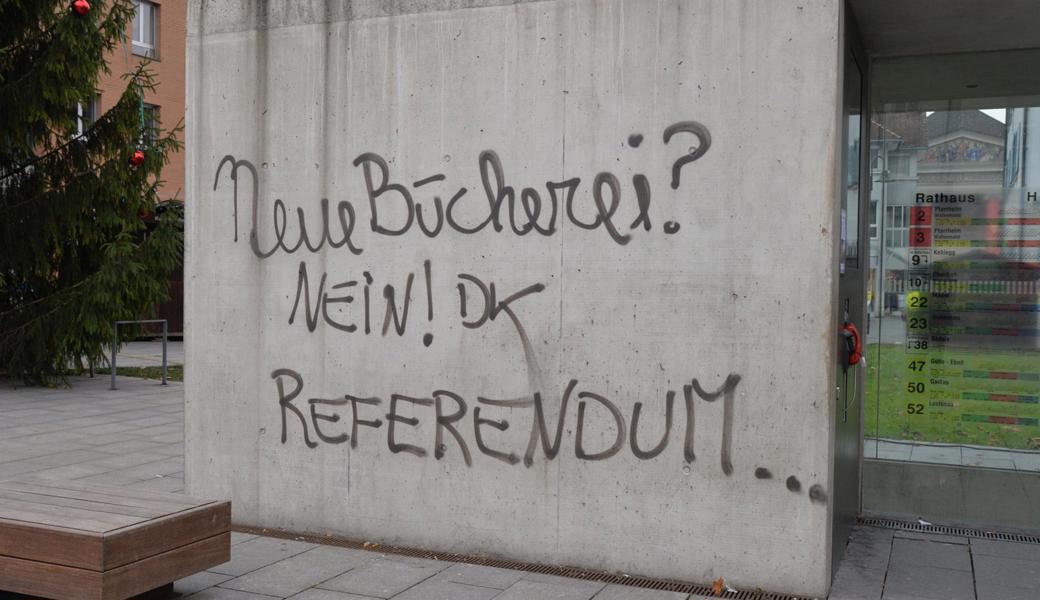 Neue Bücherei?
NEIN! DK
REFERENDUM...
Rathaus H
2 Pfarrheim
3 Pfarrheim
9 Kehlegg
10
22
23
38
47
50
52